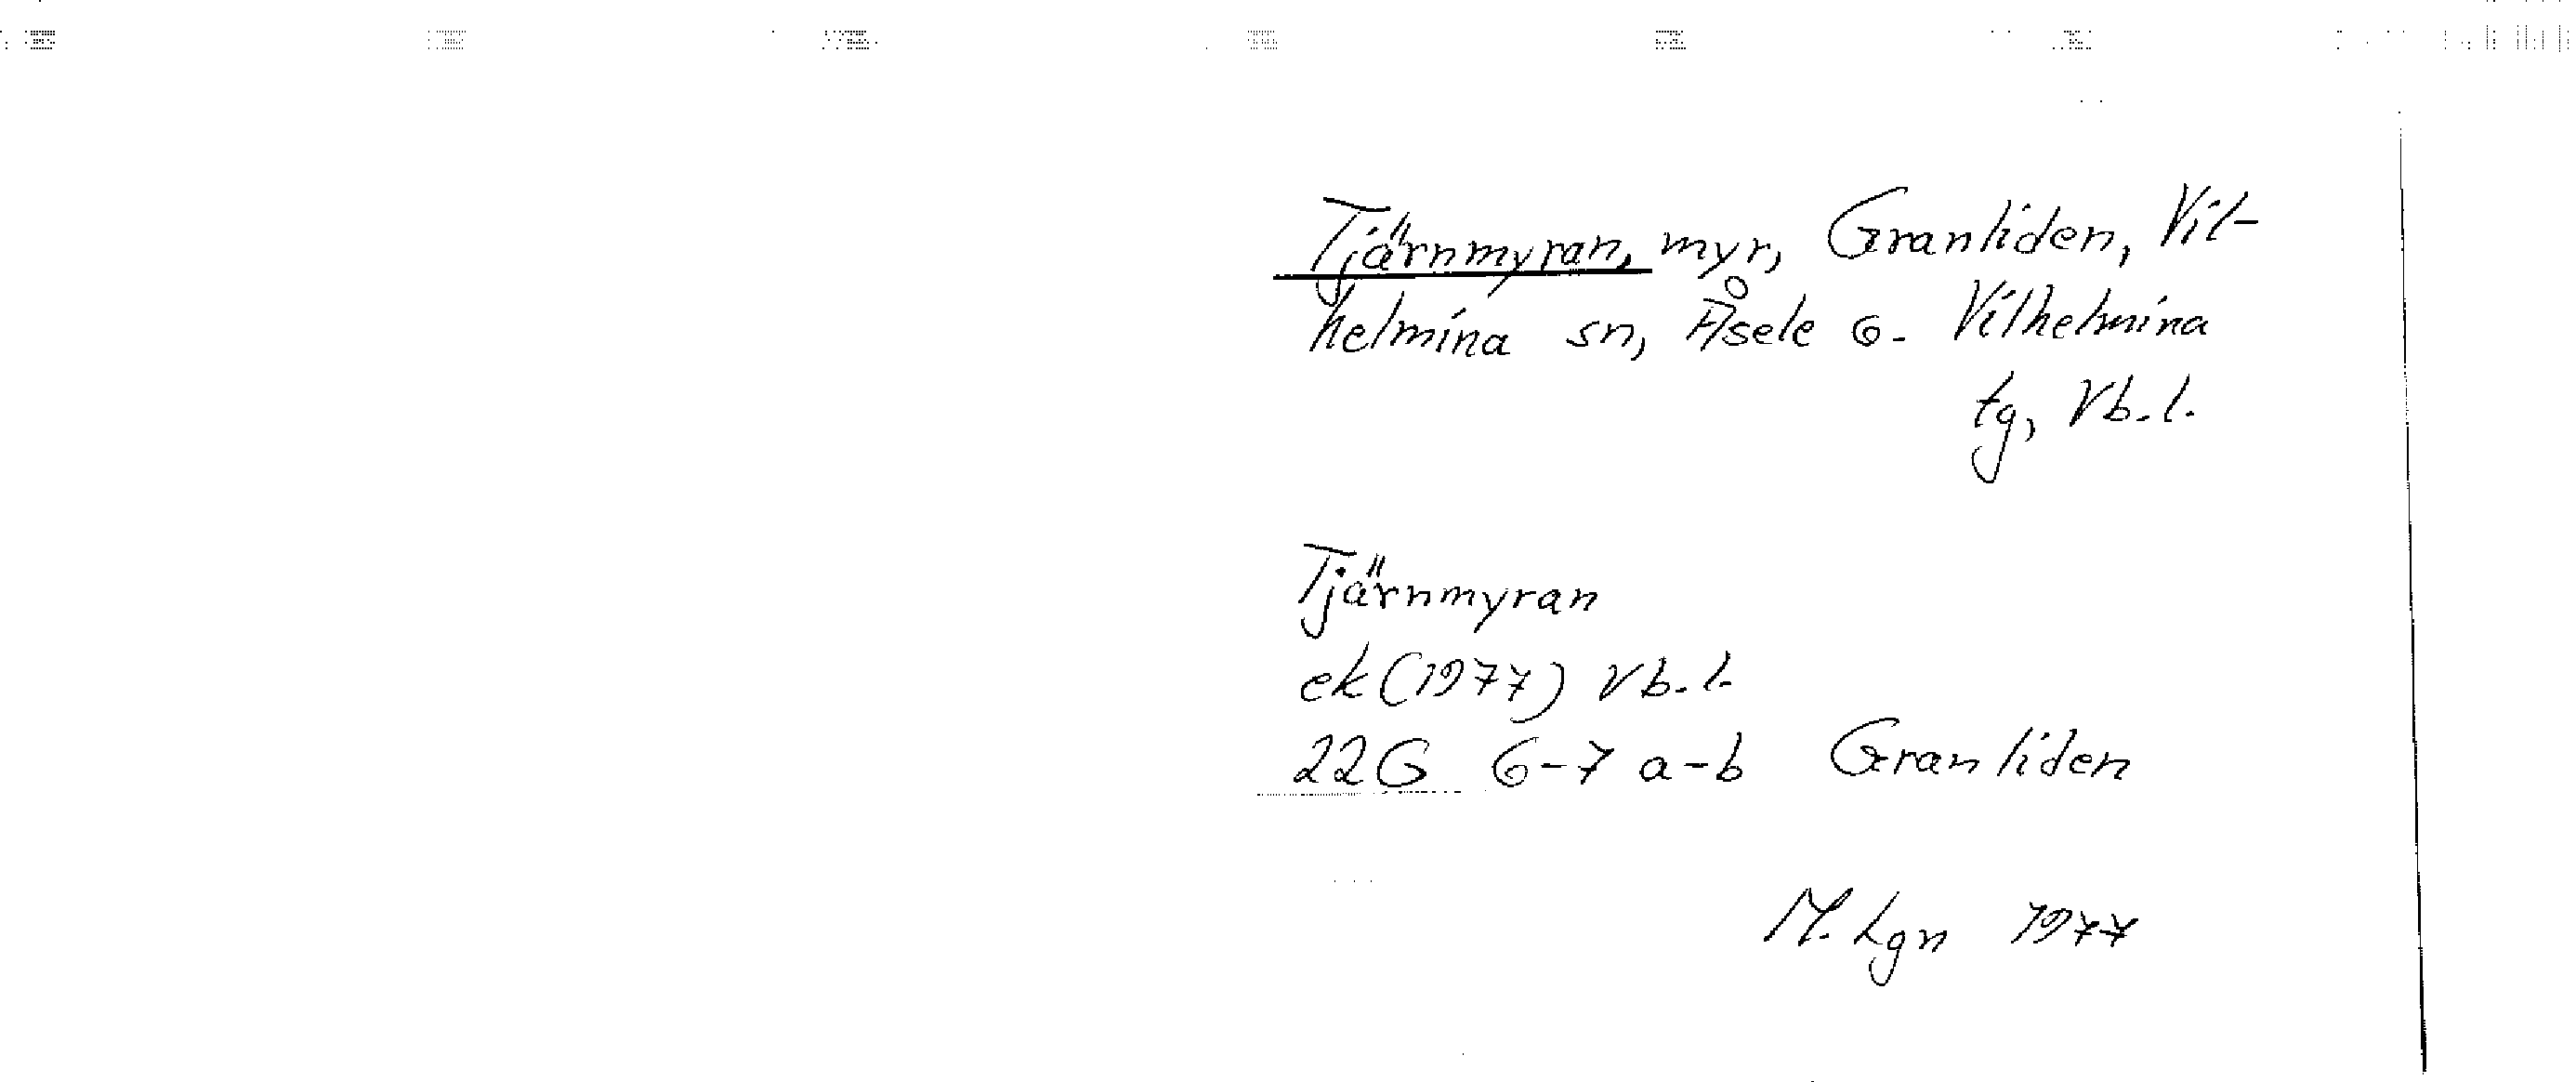 Tjärnmyran, myr, Granliden, Vil-
helmina sn, Åsele o. Vilhelmina
tg, Vb.l.
Tjärnmyran
ek (1977) Vb.l.
22G 6-7 a-b Granliden
M. Lgn 1977